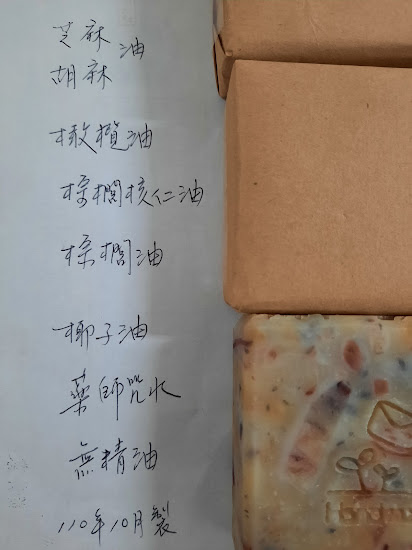 芝麻油
胡麻
橄欖油
棕櫚核仁油
棕櫚油
椰子油
藥師咒水
無精油
110年10月製
Handma